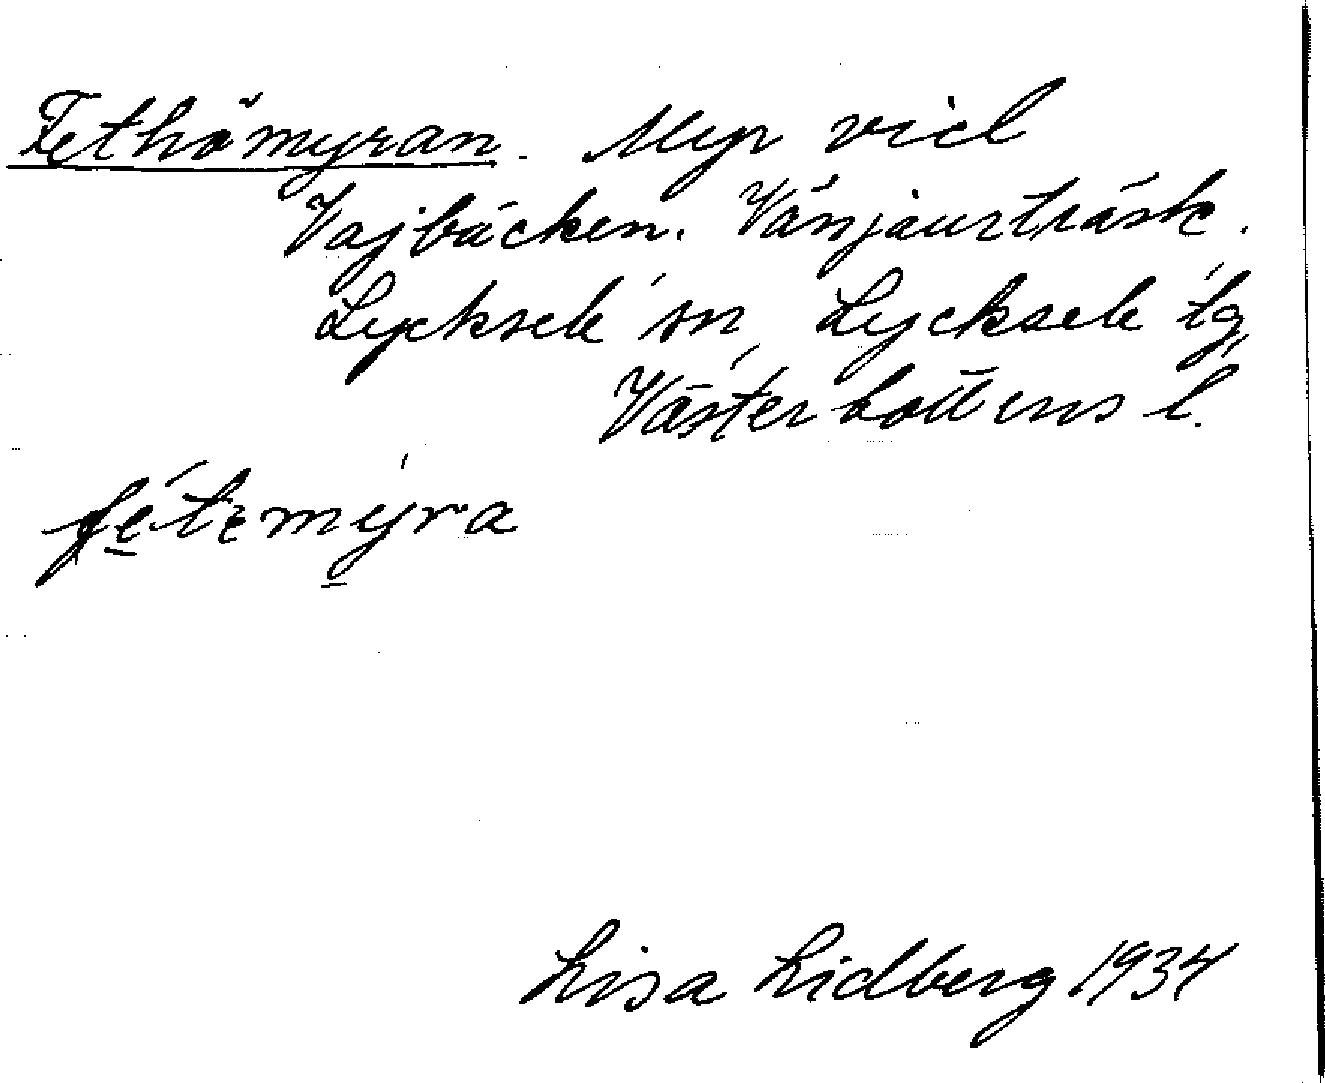 Fethömyran. Myr vid
Vajbäcken. Vänjaurträsk.
Lycksele sn, Lycksele tg,
Västerbottens l.
fétemyra
Lisa Lidberg 1934